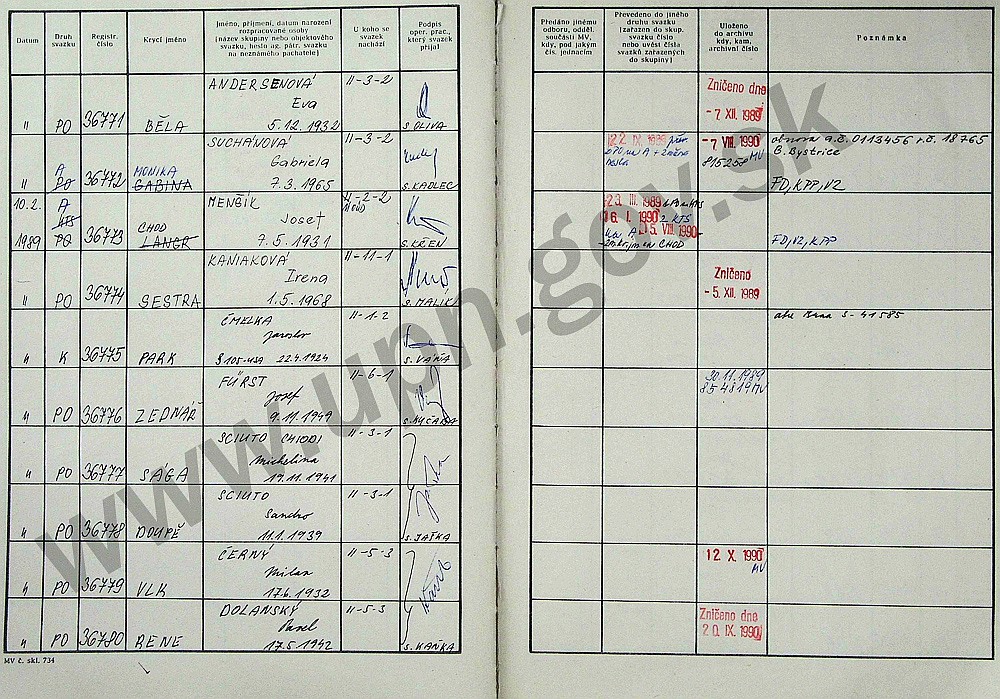 Datum
Druh svazku
Registr. číslo
Krycí jméno
Jméno, příjmení, datum narození
rozpracované osoby
(název skupiny nebo objektového
svazku, heslo ag. pátr. svazku
na neznámého pachatele)
U koho se
svazek
nachází
Podpis
oper. prac.,
který svazek
přijal
Předáno jinému
odboru, odděl.
součásti MV,
kdy, pod jakým
čís. jednacím
Převedeno do jiného
druhu svazku
(zařazen do skup.
svazku číslo
nebo uvést čísla
svazků zařazených
do skupiny)
Uloženo
do archivu
kdy, kam,
archivní číslo
Poznámka
ANDERSENOVÁ II-3-2
Eva
" PO 36771 BĚLA 5.12.1932 s. OLIVA
Zničeno dne
-7. XII. 1989
SUCHÁNOVÁ II-3-2
A MONIKA Gabriela
" PO 36772 GABINA 7.3.1965 s. KADLEC
-7. VIII. 1990
815258 MV
obnova a.č. 0113456 r.č. 18765
B. Bystrice
FD, KPP, VZ
10.2. A MENŠÍK II-2-2
KTS CHOD Josef
1989 PO 36773 LANGR 7.5.1931 s. KŘEN
23. III. 1989
16. I. 1990 z KTS
na A -5. VIII. 1990
CHOD
FD, VZ, KPP
KANIAKOVÁ II-11-1
Irena
" PO 36774 SESTRA 1.5.1968 s. MALIK
Zničeno
-5. XII. 1989
ČMELKA II-1-2
Jaroslav
" K 36775 PARK § 105-USA 22.4.1924 s. VÁŇA
S-41585
FÜRST II-6-1
Josef
" PO 36776 ZEDNÁŘ 9.11.1949 s. KUČABA
30.11.1989
854819 MV
SCIUTO CHIODI II-3-1
Michelina
" PO 36777 SÁGA 19.11.1941
SCIUTO II-3-1
Sandro
" PO 36778 DOUPĚ 11.1.1939 s. JAŤKA
ČERNÝ II-5-3
Milan
" PO 36779 VLK 17.6.1932
12. X. 1990
MV
DOLANSKÝ II-5-3
Pavel
" PO 36780 RENE 17.5.1942 s. KAŇKA
Zničeno dne
20. IX. 1990
MV č. skl. 734
www.upn.gov.sk